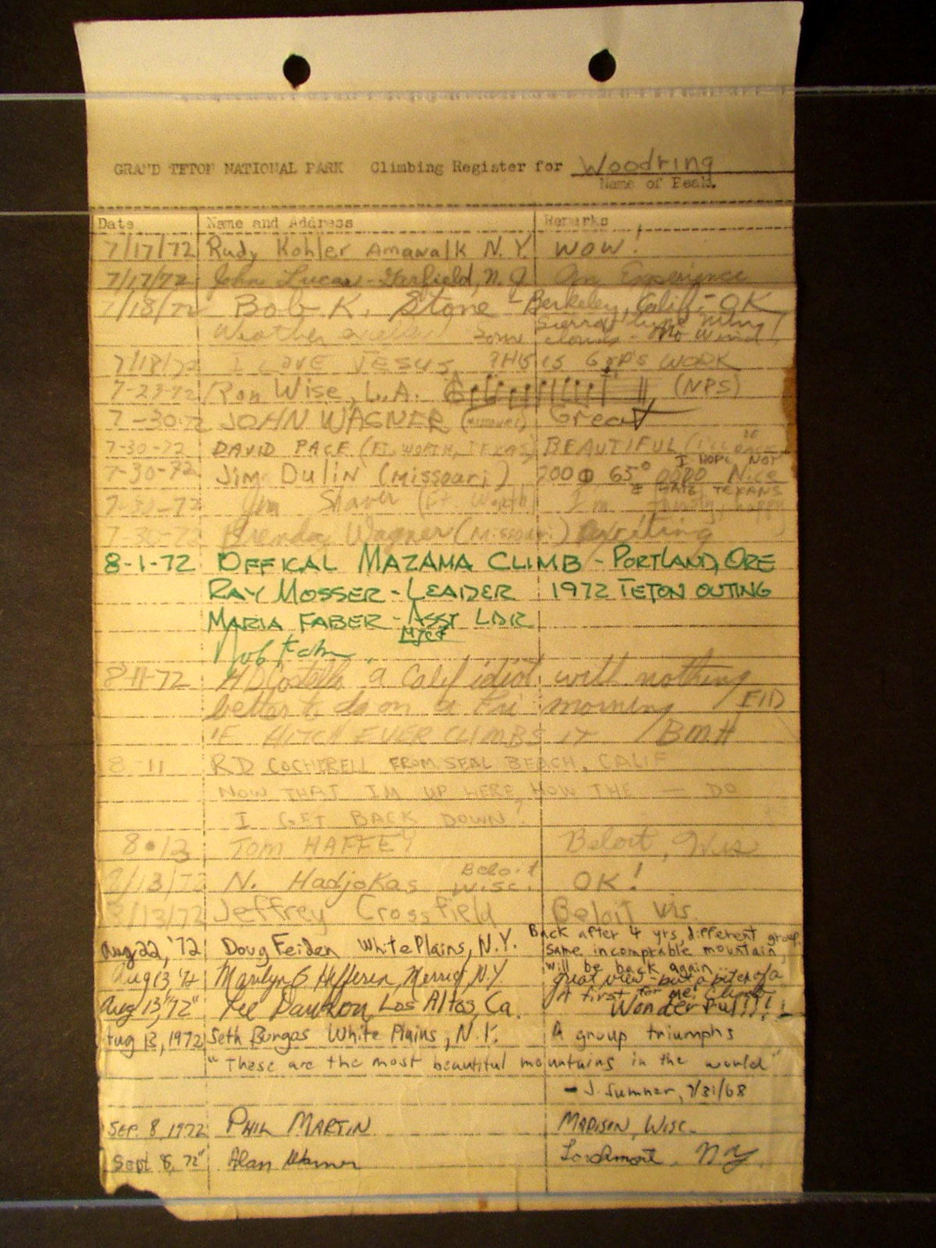 GRAND TETON NATIONAL PARK Climbing Register for Woodring
Name of Peak.
Date Name and Address Remarks
7/17/72 Rudy Kohler Amawalk N.Y. WOW!
7/17/72 John Lucas - Garfield, N.J. An Experience
7/18/72 Bob K. Stone - Berkeley, Calif - OK
Weather Some clouds - No Wind!
7/18/72 I LOVE JESUS, THIS IS GOD'S WORK
7-23-72 Ron Wise, L.A. (NPS)
7-30-72 JOHN WAGNER (Missouri) Great
7-30-72 DAVID PACE (FT. WORTH, TEXAS) BEAUTIFUL (I'LL BE BACK
I HOPE NOT
7-30-72 Jim Dulin (Missouri) 65° Nice
TEXANS
7-30-72 Jim Shaver (Ft. Worth) I'm happy
7-30-72 Brenda Wagner (Missouri) Exciting
8-1-72 OFFICAL MAZAMA CLIMB - PORTLAND, ORE
RAY MOSSER - LEADER 1972 TETON OUTING
MARIA FABER - ASST LDR
8-11-72 a Calif idiot with nothing
better to do on a Fri morning
IF HITCH EVER CLIMBS IT / BMH
8-11 RD COCHERELL FROM SEAL BEACH, CALIF
NOW THAT IM UP HERE, HOW THE — DO
I GET BACK DOWN!
8·13 TOM HAFFEY Beloit, Wis
8/13/72 N. Hadjokas Beloit Wisc. OK!
8/13/72 Jeffrey Crossfield Beloit Wis.
Aug 22, '72 Doug Feiden White Plains, N.Y. Back after 4 yrs, different group
same incomprble mountain,
will be back again
Aug 13, '72 Marilyn Heffren, Merrick NY great view - but a bitch of a climb
Aug 13, "72" Lee Dawson, Los Altos, Ca. A first for me! Wonderful!!!!
Aug 13, 1972 Seth Burgos White Plains, N.Y. A group triumphs
"These are the most beautiful mountains in the world"
- J. Sumner, 7/31/68
SEP. 8, 1972 PHIL MARTIN MADISON, WISC.
Sept 8, 72" Alan Warner Larchmont, NY.